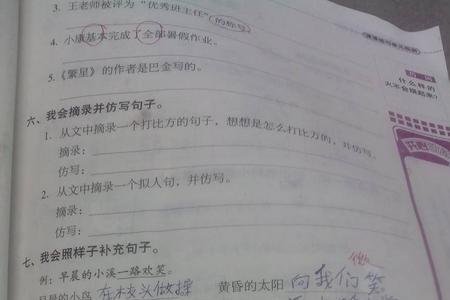 3. 王老师被评为“优秀班主任”(的称号)
4. 小康基本完成了全部暑假作业。
5.《繁星》的作者是巴金写的。
六、我会摘录并仿写句子。
1. 从文中摘录一个打比方的句子，想想是怎么打比方的，并仿写。
摘录：
仿写：
2. 从文中摘录一个拟人句，并仿写。
摘录：
仿写：
七、我会照样子补充句子。
例：早晨的小溪一路欢笑。
早晨的小鸟 在枝头做操
黄昏的太阳 向我们 笑
什么样的
火不会烧起来？
开心